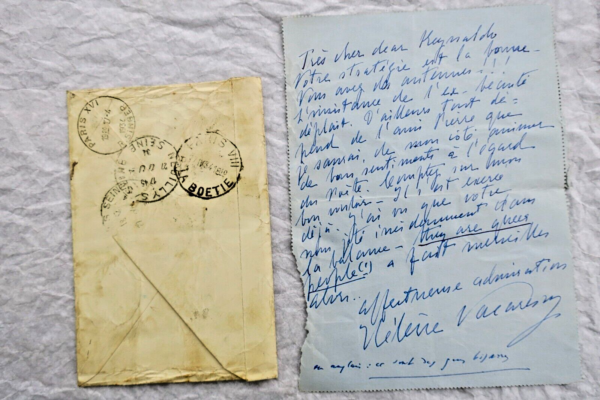 PARIS XVI
NEUILLY S SEINE
SEINE
PARIS VIII
BOETIE
Très cher dear Reynaldo
Votre stratégie est la bonne
Vous avez des antennes!!!
L'insistance de l'ex-beauté
déplaît. D'ailleurs tout dé-
pend de l'ami Pierre que
je saurai, de mon côté, animer
de bons sentiments à l'égard
du poète. Comptez sur mon
bon vouloir. Il s'est exercé
déjà. J'ai vu que votre
nom jeté incidemment dans
la balance - they are queer
people (!) a fait merveilles
alors..
affectueuse admiration
Hélène Vacaresco
en anglais: ce sont des gens